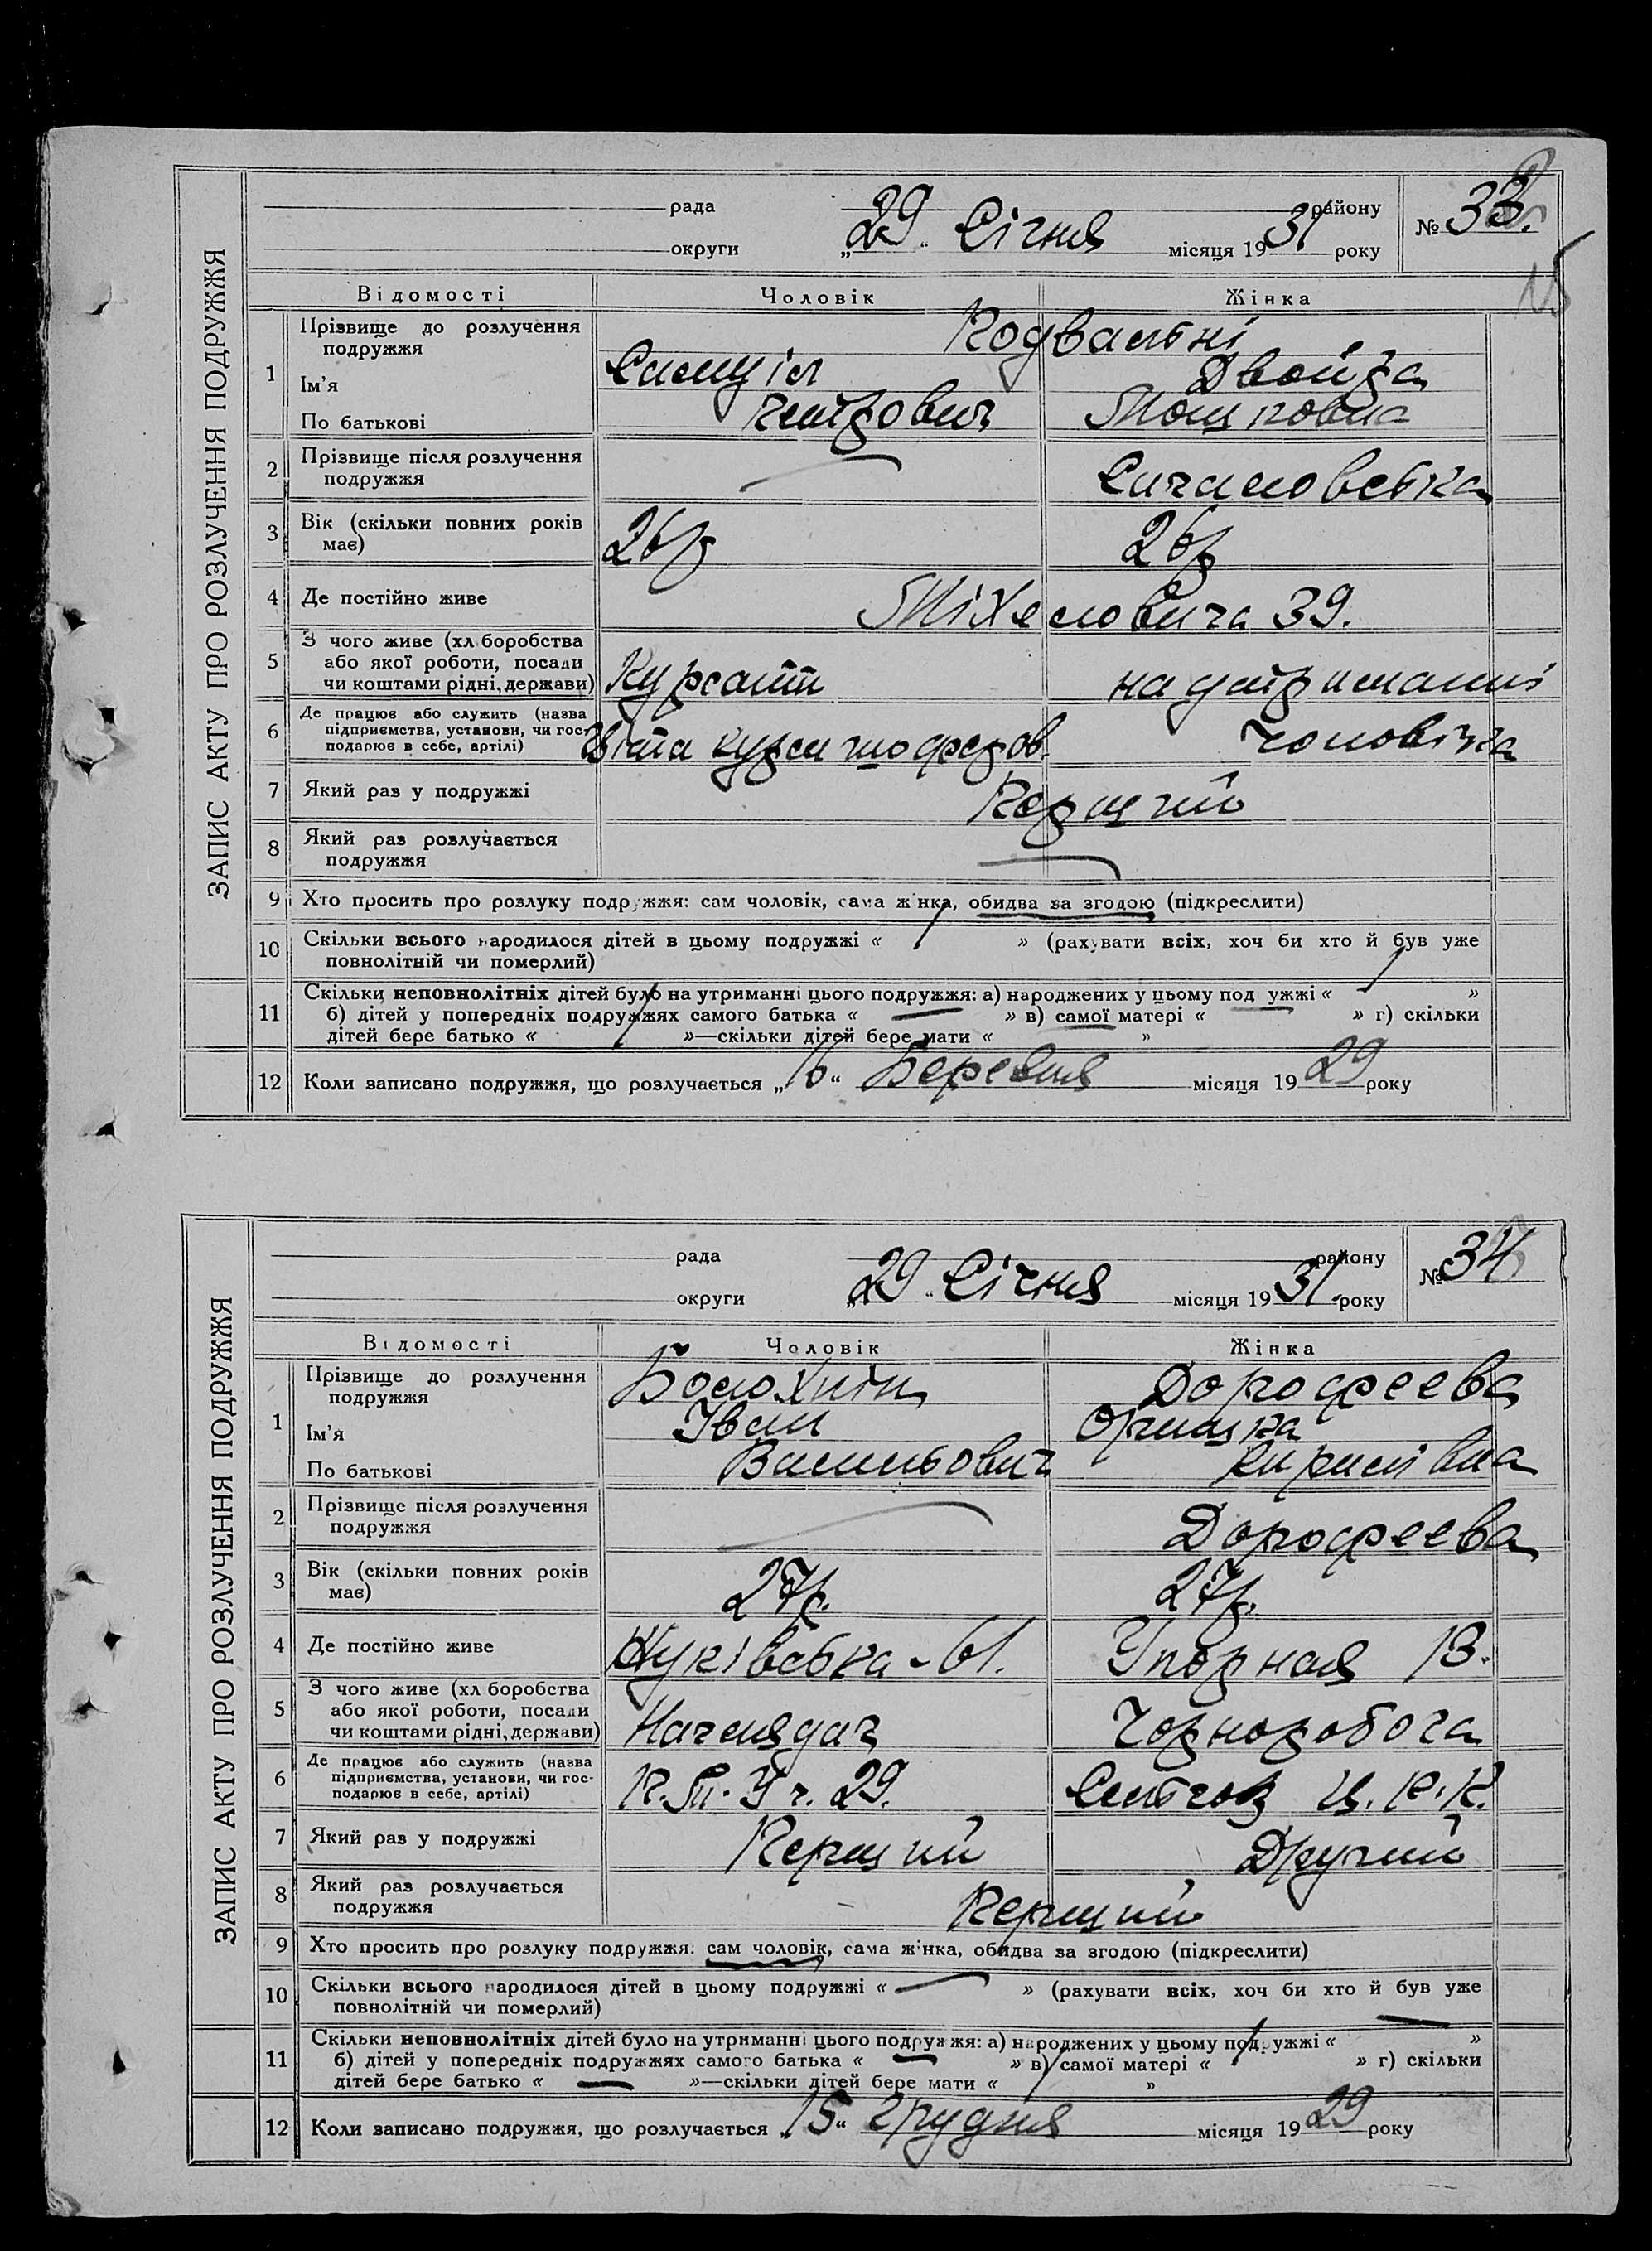 ЗАПИС АКТУ ПРО РОЗЛУЧЕННЯ ПОДРУЖЖЯ
рада района № 33.
округи „29“ Січня місяця 1931 року
15
Відомості Чоловік Жінка
1 Прізвище до розлучення подружжя Подвальні
Ім'я Самуіл Двойра
По батькові Мошковна
2 Прізвище після розлучення подружжя —
3 Вік (скільки повних років має) 26р 26р
4 Де постійно живе Міхеловича 39.
5 З чого живе (хл.боробства або якої роботи, посади чи коштами рідні, держави) Курсант на утриманні
6 Де працює або служить (назва підприємства, установи, чи гос- подарює в себе, артілі) курси шоферов. Чоловіка
7 Який раз у подружжі Перший
8 Який раз розлучається подружжя —
9 Хто просить про розлуку подружжя: сам чоловік, сама жінка, обидва за згодою (підкреслити)
10 Скільки всього народилося дітей в цьому подружжі « / » (рахувати всіх, хоч би хто й був уже
повнолітній чи померлий)
11 Скільки неповнолітніх дітей було на утриманні цього подружжя: а) народжених у цьому подружжі « / »
б) дітей у попередніх подружжях самого батька « — » в) самої матері « — » г) скільки
дітей бере батько « / »—скільки дітей бере мати « »
12 Коли записано подружжя, що розлучається „16“ Березня місяця 1929 року
ЗАПИС АКТУ ПРО РОЗЛУЧЕННЯ ПОДРУЖЖЯ
рада району № 34
округи „29“ Січня місяця 1931. року
Відомості Чоловік Жінка
1 Прізвище до розлучення подружжя Болохнін Дорофеева
Ім'я Іван Оришка
По батькові Васильович Кирилівна
2 Прізвище після розлучення подружжя — Дорофеева
3 Вік (скільки повних років має) 27р. 27р.
4 Де постійно живе 61. Упорная 13.
5 З чого живе (хл.боробства або якої роботи, посади чи коштами рідні, держави) Наглядач Чорноробоча
6 Де працює або служить (назва підприємства, установи, чи гос- подарює в себе, артілі) ч. 29. Сільгоз Ц.Р.К.
7 Який раз у подружжі Перший Другий
8 Який раз розлучається подружжя Перший
9 Хто просить про розлуку подружжя: сам чоловік, сама жінка, обидва за згодою (підкреслити)
10 Скільки всього народилося дітей в цьому подружжі « — » (рахувати всіх, хоч би хто й був уже
повнолітній чи померлий)
11 Скільки неповнолітніх дітей було на утриманні цього подружжя: а) народжених у цьому подружжі « — »
б) дітей у попередніх подружжях самого батька « — » в) самої матері « / » г) скільки
дітей бере батько « — »—скільки дітей бере мати « / »
12 Коли записано подружжя, що розлучається „15“ Грудня місяця 1929 року